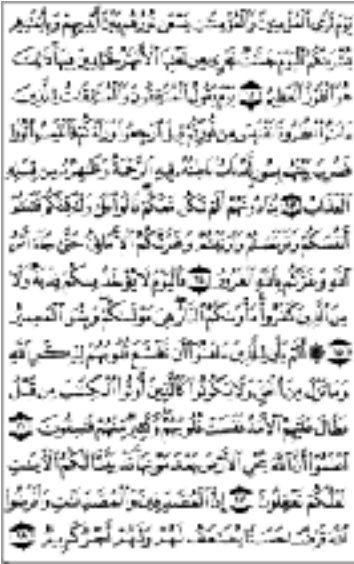 يَوْمَ تَرَى ٱلْمُؤْمِنِينَ وَٱلْمُؤْمِنَـٰتِ يَسْعَىٰ نُورُهُم بَيْنَ أَيْدِيهِمْ وَبِأَيْمَـٰنِهِم
بُشْرَىٰكُمُ ٱلْيَوْمَ جَنَّـٰتٌ تَجْرِى مِن تَحْتِهَا ٱلْأَنْهَـٰرُ خَـٰلِدِينَ فِيهَا ۚ ذَٰلِكَ
هُوَ ٱلْفَوْزُ ٱلْعَظِيمُ ١٢ يَوْمَ يَقُولُ ٱلْمُنَـٰفِقُونَ وَٱلْمُنَـٰفِقَـٰتُ لِلَّذِينَ
ءَامَنُوا۟ ٱنظُرُونَا نَقْتَبِسْ مِن نُّورِكُمْ قِيلَ ٱرْجِعُوا۟ وَرَآءَكُمْ فَٱلْتَمِسُوا۟ نُورًا
فَضُرِبَ بَيْنَهُم بِسُورٍ لَّهُۥ بَابٌۢ بَاطِنُهُۥ فِيهِ ٱلرَّحْمَةُ وَظَـٰهِرُهُۥ مِن قِبَلِهِ
ٱلْعَذَابُ ١٣ يُنَادُونَهُمْ أَلَمْ نَكُن مَّعَكُمْ ۖ قَالُوا۟ بَلَىٰ وَلَـٰكِنَّكُمْ فَتَنتُمْ
أَنفُسَكُمْ وَتَرَبَّصْتُمْ وَٱرْتَبْتُمْ وَغَرَّتْكُمُ ٱلْأَمَانِىُّ حَتَّىٰ جَآءَ أَمْرُ
ٱللَّهِ وَغَرَّكُم بِٱللَّهِ ٱلْغَرُورُ ١٤ فَٱلْيَوْمَ لَا يُؤْخَذُ مِنكُمْ فِدْيَةٌ وَلَا
مِنَ ٱلَّذِينَ كَفَرُوا۟ ۚ مَأْوَىٰكُمُ ٱلنَّارُ ۖ هِىَ مَوْلَىٰكُمْ ۖ وَبِئْسَ ٱلْمَصِيرُ
١٥ ۞ أَلَمْ يَأْنِ لِلَّذِينَ ءَامَنُوٓا۟ أَن تَخْشَعَ قُلُوبُهُمْ لِذِكْرِ ٱللَّهِ
وَمَا نَزَلَ مِنَ ٱلْحَقِّ وَلَا يَكُونُوا۟ كَٱلَّذِينَ أُوتُوا۟ ٱلْكِتَـٰبَ مِن قَبْلُ
فَطَالَ عَلَيْهِمُ ٱلْأَمَدُ فَقَسَتْ قُلُوبُهُمْ ۖ وَكَثِيرٌ مِّنْهُمْ فَـٰسِقُونَ ١٦
ٱعْلَمُوٓا۟ أَنَّ ٱللَّهَ يُحْىِ ٱلْأَرْضَ بَعْدَ مَوْتِهَا ۚ قَدْ بَيَّنَّا لَكُمُ ٱلْـَٔايَـٰتِ
لَعَلَّكُمْ تَعْقِلُونَ ١٧ إِنَّ ٱلْمُصَّدِّقِينَ وَٱلْمُصَّدِّقَـٰتِ وَأَقْرَضُوا۟
ٱللَّهَ قَرْضًا حَسَنًا يُضَـٰعَفُ لَهُمْ وَلَهُمْ أَجْرٌ كَرِيمٌ ١٨